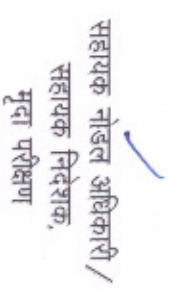 सहायक नोडल अधिकारी/
सहायक निदेशक,
मृदा परीक्षण